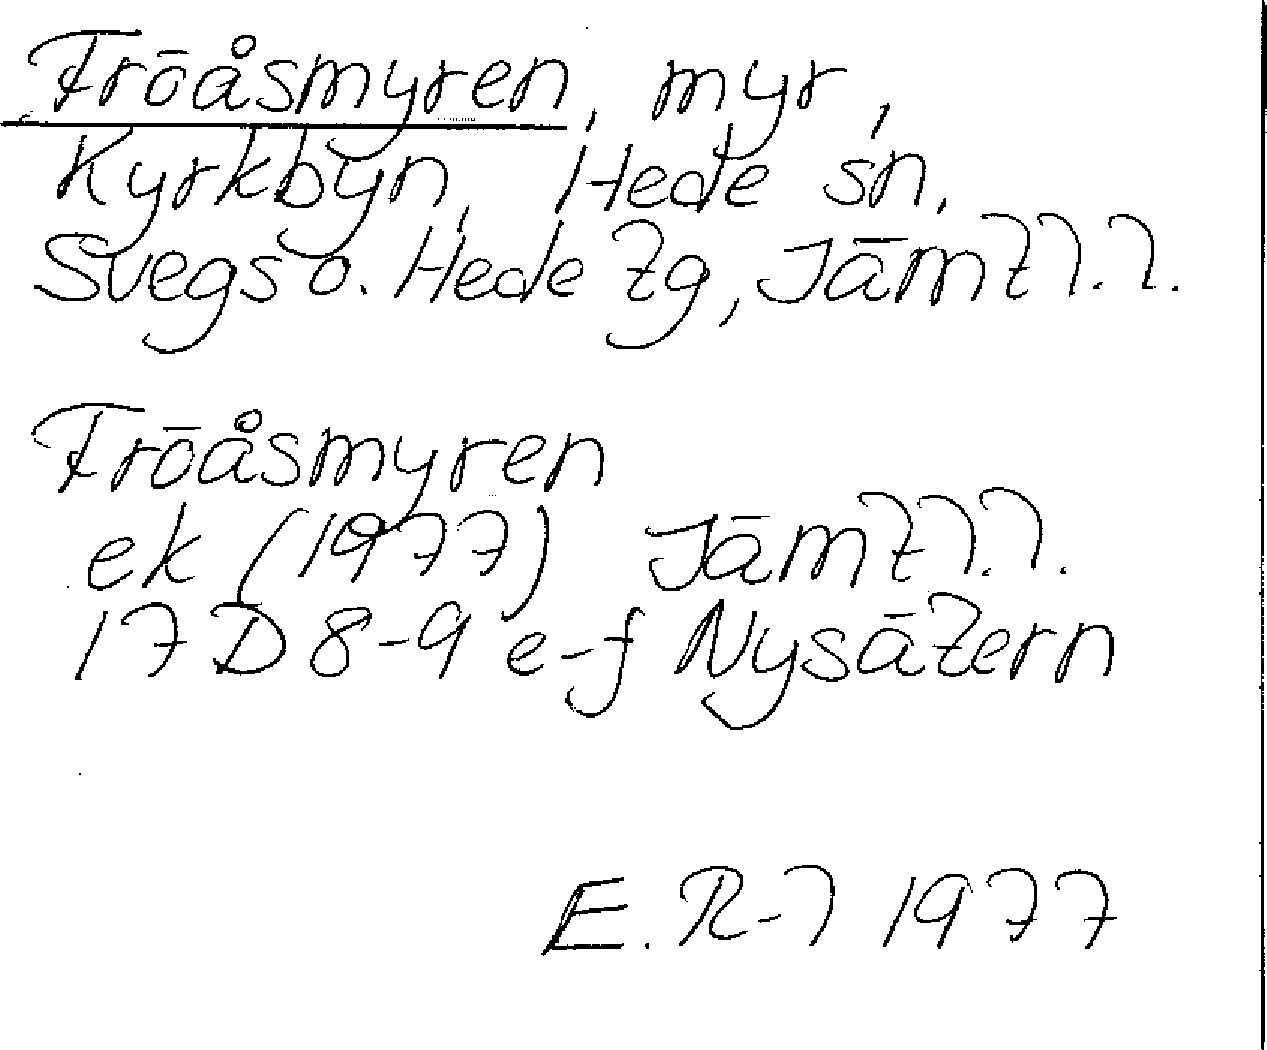 Fröåsmyren, myr,
Kyrkbyn, Hede sn,
Svegs o. Hede tg, Jämtl.l.
Fröåsmyren
ek (1977) Jämtl.l.
17D 8-9 e-f Nysätern
E. R-l 1977